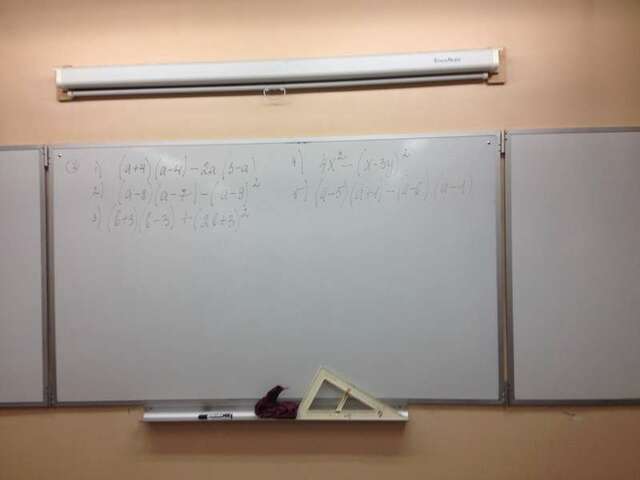 ② 1) (a+4)(a-4)-2a(3-a)
2) (a-8)(a-7)-(a-9)²
3) (b+3)(b-3)+(2b+3)²
4) 4x²-(x-3y)²
5) (a-5)(a+1)-(a-6)(a-1)